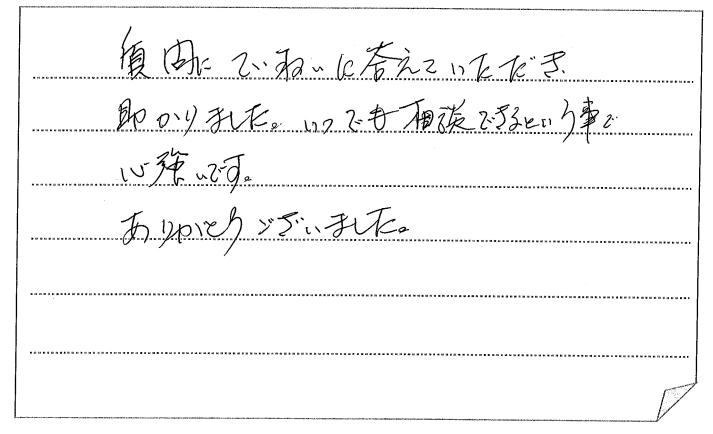 質問にていねいに答えていただき、
助かりました。いつでも相談できるという事で
心強いです。
ありがとうございました。